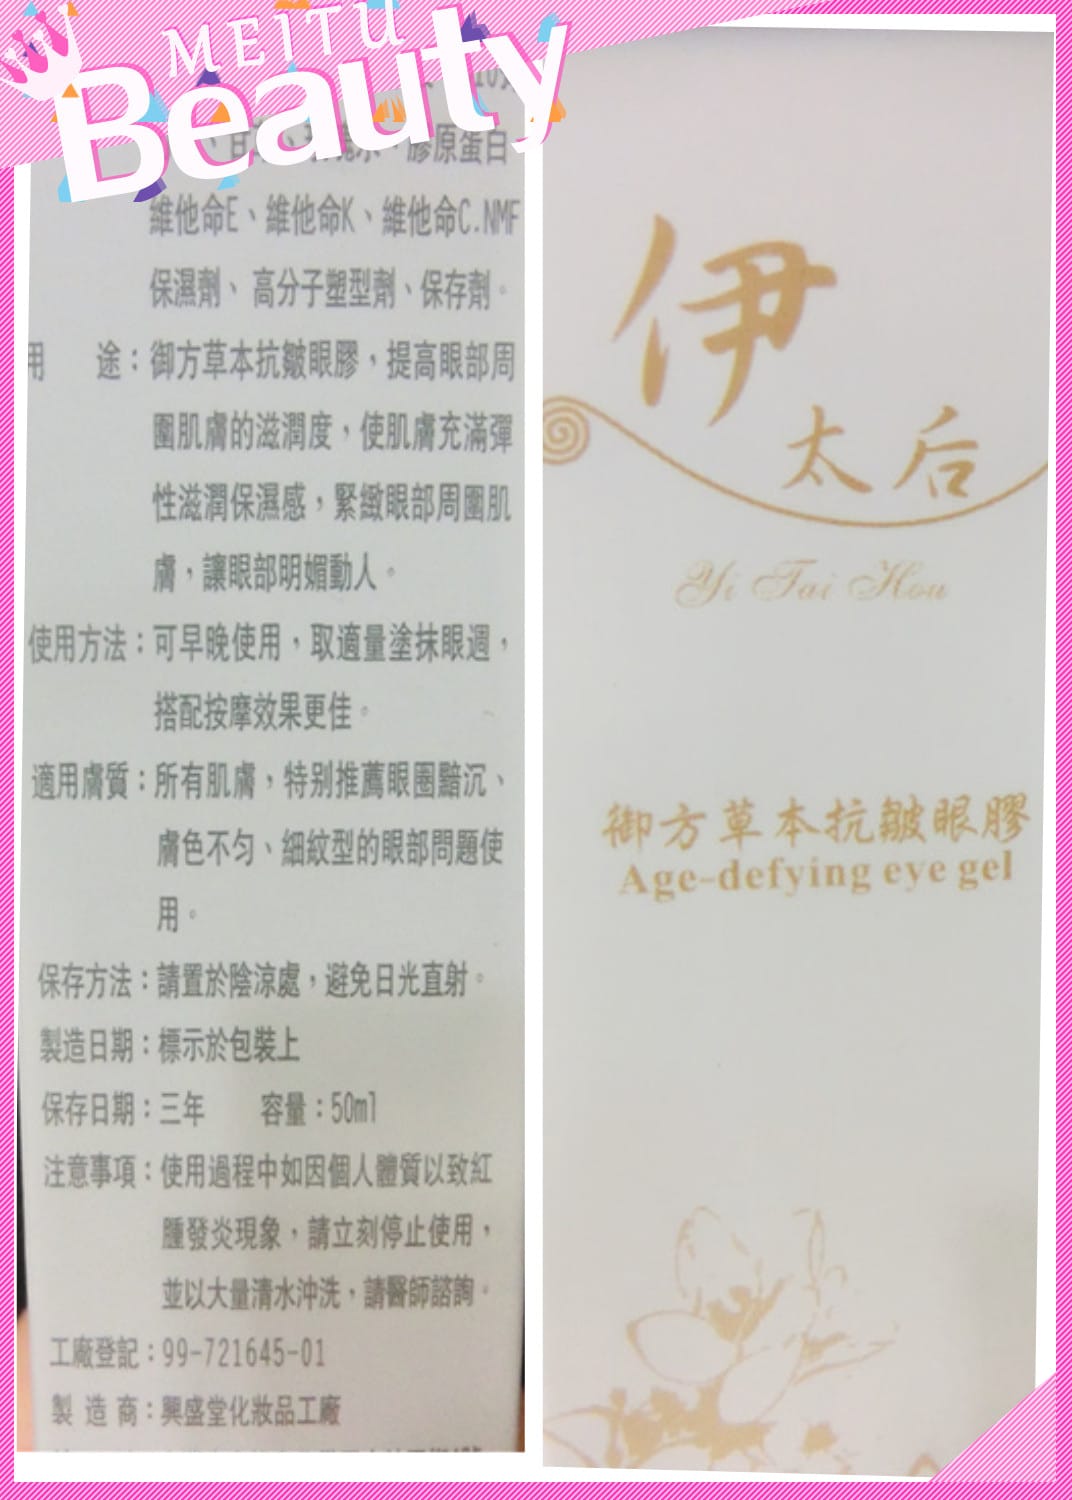 MEITU
Beauty
膠原蛋白
維他命E、維他命K、維他命C.NMF
保濕劑、高分子塑型劑、保存劑。
用 途：御方草本抗皺眼膠，提高眼部周
圍肌膚的滋潤度，使肌膚充滿彈
性滋潤保濕感，緊緻眼部周圍肌
膚，讓眼部明媚動人。
使用方法：可早晚使用，取適量塗抹眼週，
搭配按摩效果更佳。
適用膚質：所有肌膚，特別推薦眼圈黯沉、
膚色不勻、細紋型的眼部問題使
用。
保存方法：請置於陰涼處，避免日光直射。
製造日期：標示於包裝上
保存日期：三年 容量：50ml
注意事項：使用過程中如因個人體質以致紅
腫發炎現象，請立刻停止使用，
並以大量清水沖洗，請醫師諮詢。
工廠登記：99-721645-01
製造商：興盛堂化妝品工廠
伊
太后
Yi Tai Hou
御方草本抗皺眼膠
Age-defying eye gel